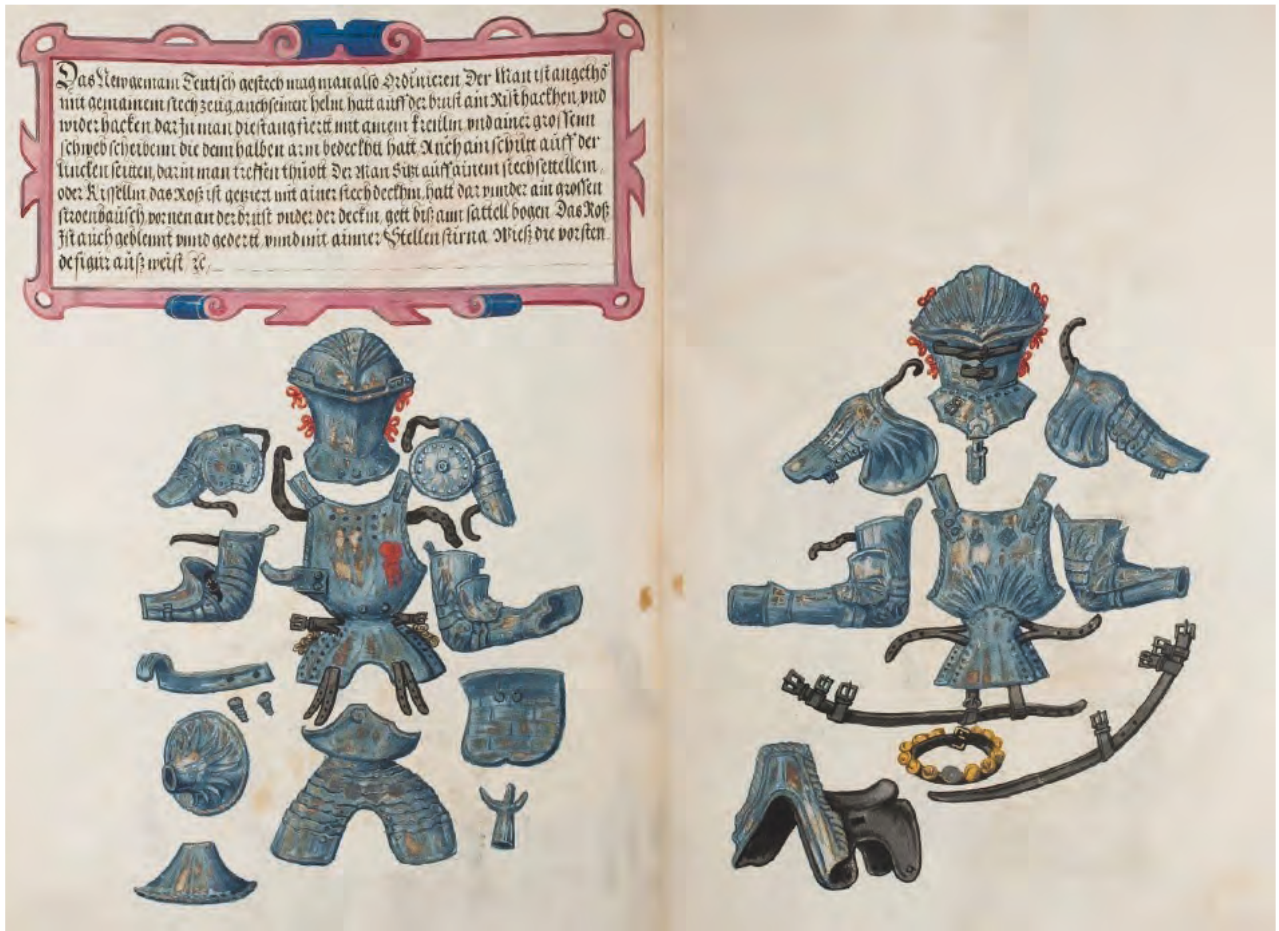 Das Newgemain Teutsch gestech mag man also Ordinieren Der Man ist angethō
mit gemainem stech zeug, auch seinen helm hatt auff der brust ain Risthackhen, vnd
wider hacken dar Jn man die stang fiertt mit ainem krenlin vnd ainer grossenn
schweb scheibenn die denn halben arm bedeckhtt hatt Auch ain schiltt auff der
lincken seitten, darin man treffen thuott Der Man Sitzt auff ainem stech settellein,
oder Kissellin das Roß ist geziert mit ainer stech deckhin, hatt dar vnnder ain grossen
stroenbausch vornen an der brust vnder der deckin, gett biß ann sattell bogen Das Roß
Jst auch geblennt vnnd gedertt vnnd mit ainner Stellen stirna Wieß die vorsten
de figur auß weist ꝛc